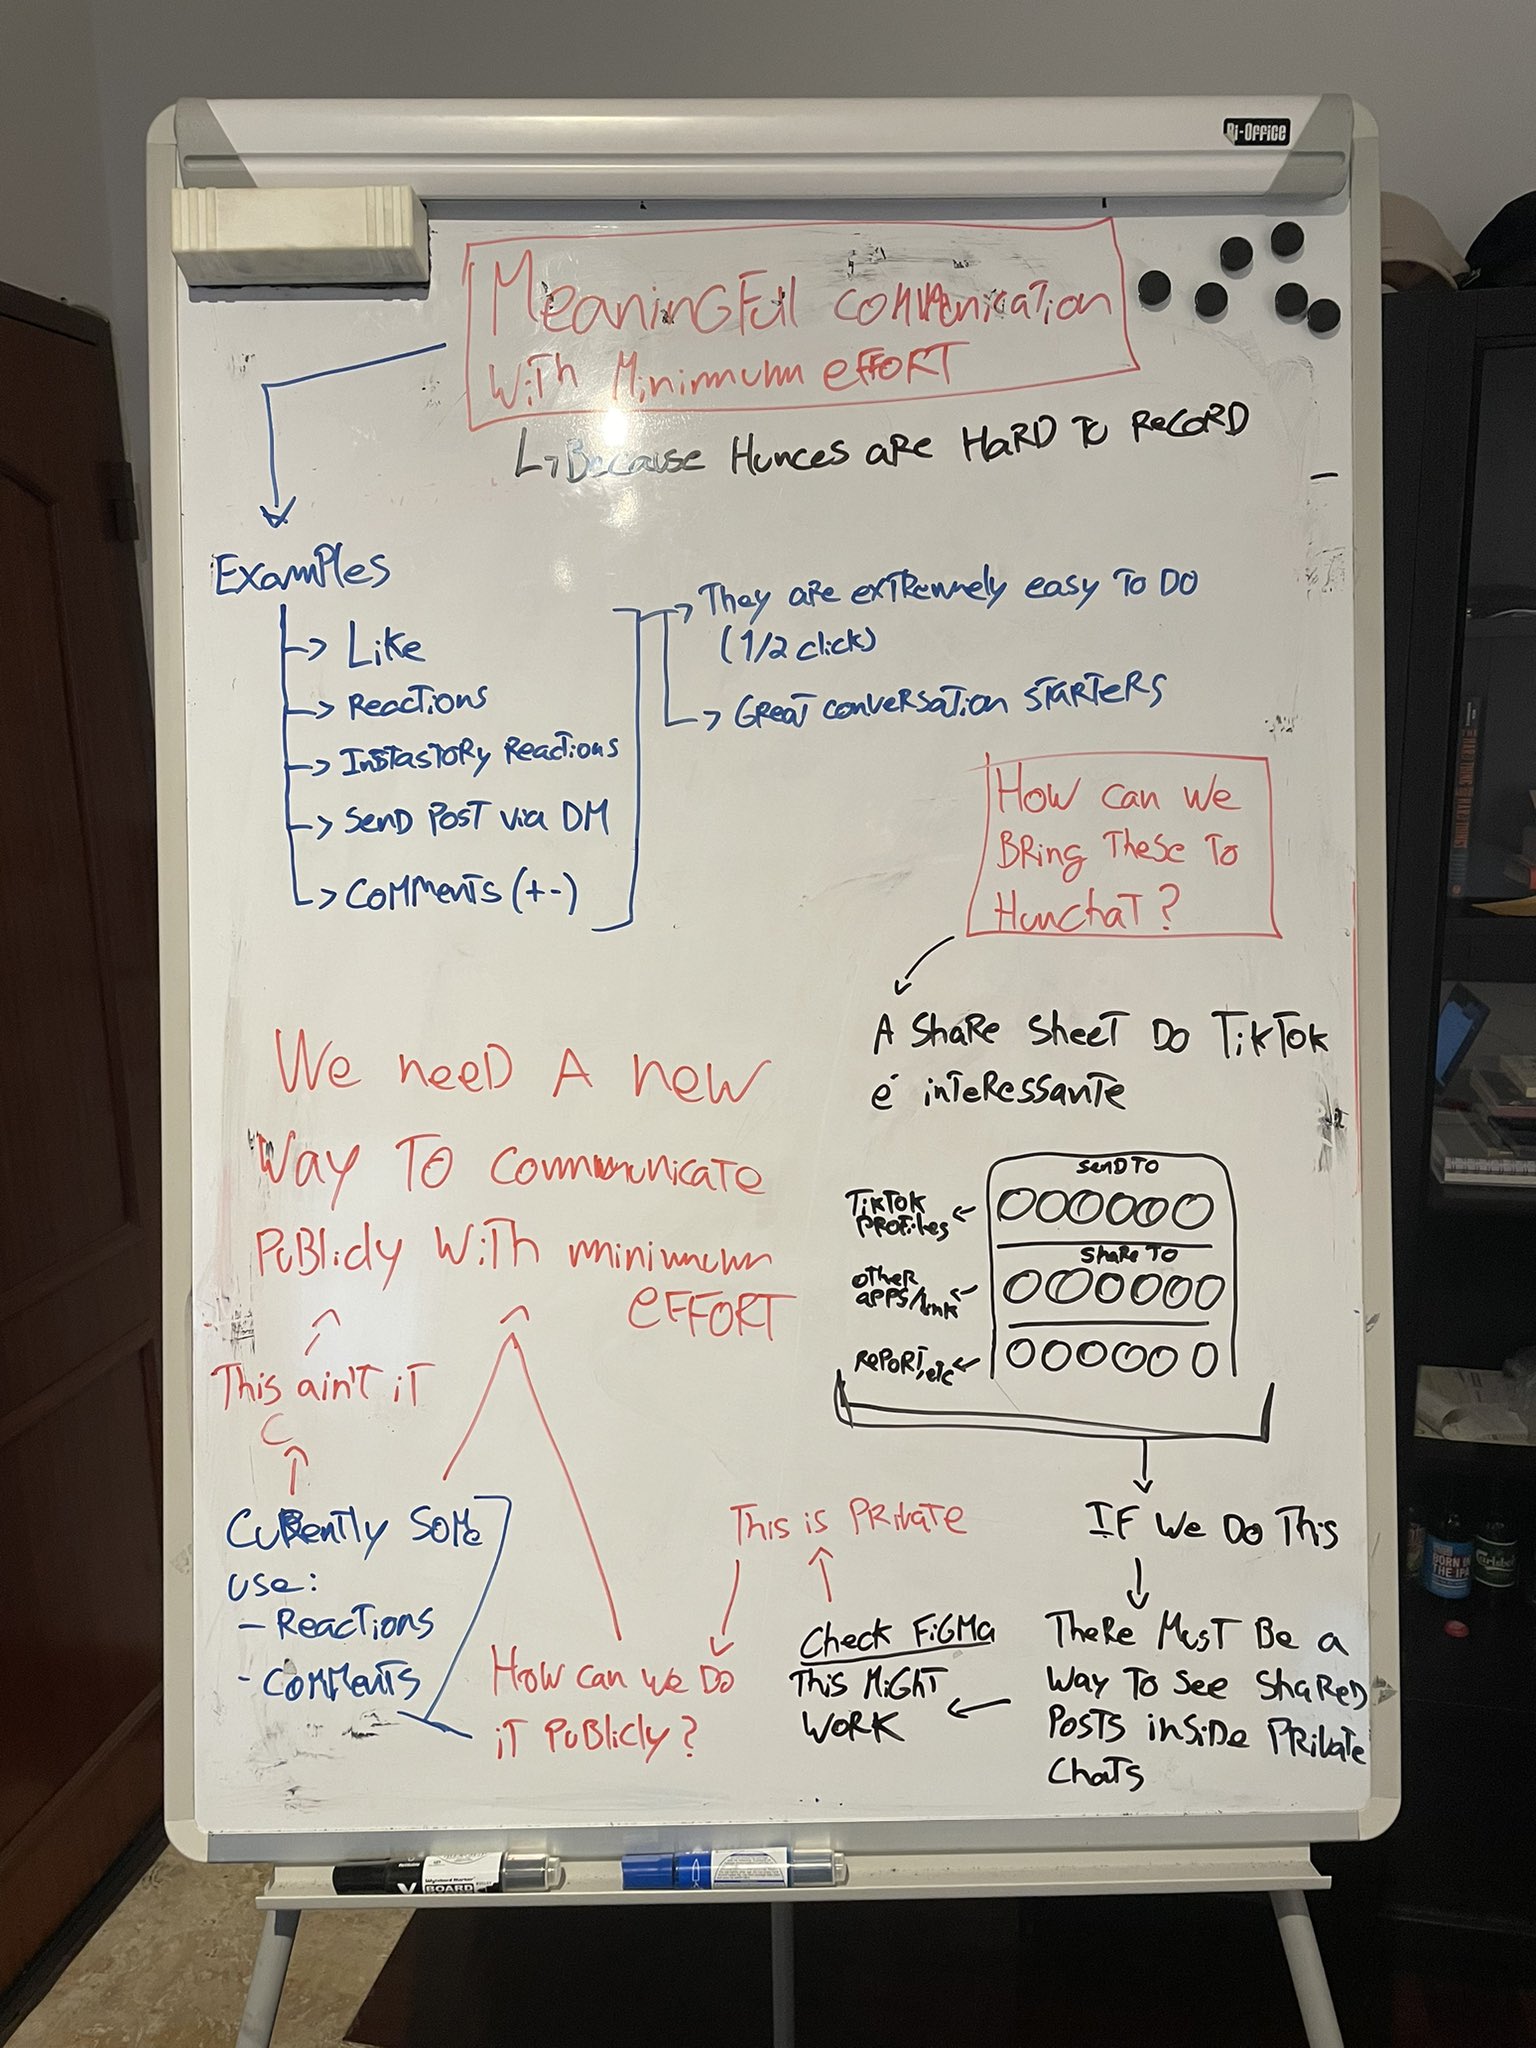 Bi-Office
Meaningful communication
with minimum effort
Because Hunces are hard to record
Examples
Like
Reactions
Instastory Reactions
Send post via DM
Comments (+-)
They are extremely easy to do
(1/2 click)
Great conversation starters
How can we
bring these to
Hunchat?
A share sheet do TikTok
é interessante
Send to
TikTok
profiles
Share to
other
apps/link
Report, etc
If we do this
There must be a
way to see shared
posts inside private
chats
Check Figma
This might
work
This is private
How can we do
it publicly?
We need a new
way to communicate
publicly with minimum
effort
This ain't it
Currently some
use:
- Reactions
- Comments
BOARD
THE HARD THING ABOUT HARD THINGS
BORN IN
THE IPA
Carlsberg